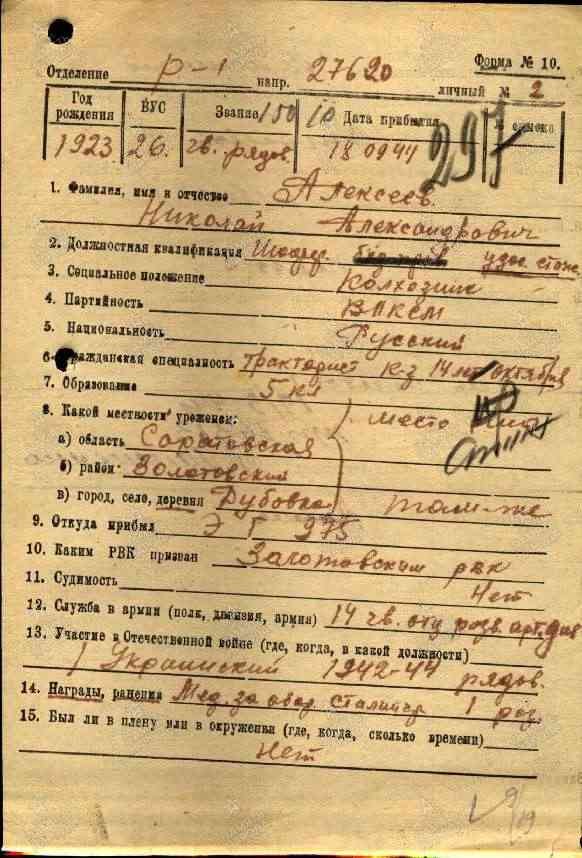 Форма № 10.
Отделение р-1 напр. 27620 личный № 2
Год рождения ВУС Звание 150 10 Дата прибытия №
1923 26. гв. рядов. 18 09 44 297
1. Фамилия, имя и отчество Алексеев
Николай Александрович
2. Должностная квалификация
3. Социальное положение Колхозник
4. Партийность ВЛКСМ
5. Национальность Русский
6. Гражданская специальность тракторист к-з 14 лет октября
7. Образование 5 кл
8. Какой местности уроженец: место
а) область Саратовская
б) район Золотовский
в) город, село, деревня Дубовка там-же
9. Откуда прибыл Э Г 975
10. Каким РВК призван Золотовским РВК
11. Судимость Нет
12. Служба в армии (полк, дивизия, армия) 14 гв. отд разв. арт. див
13. Участие в Отечественной войне (где, когда, в какой должности)
1 Украинский 1942-44 рядов.
14. Награды, ранения Мед. за обор. Сталингр 1 раз.
15. Был ли в плену или в окруженьи (где, когда, сколько времени)
Нет
9/19